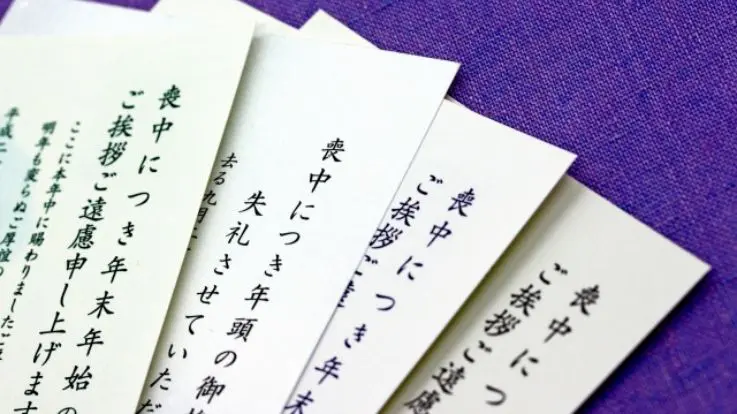 喪中につき年末年始の
ご挨拶ご遠慮申し上げます
ここに本年中に賜わりましたご
明年も変らぬご厚誼の
平成二
喪中につき年頭の御
失礼させていただ
去る九月
喪中につき年末
ご挨拶ご遠
喪中につ
ご挨拶ご遠慮